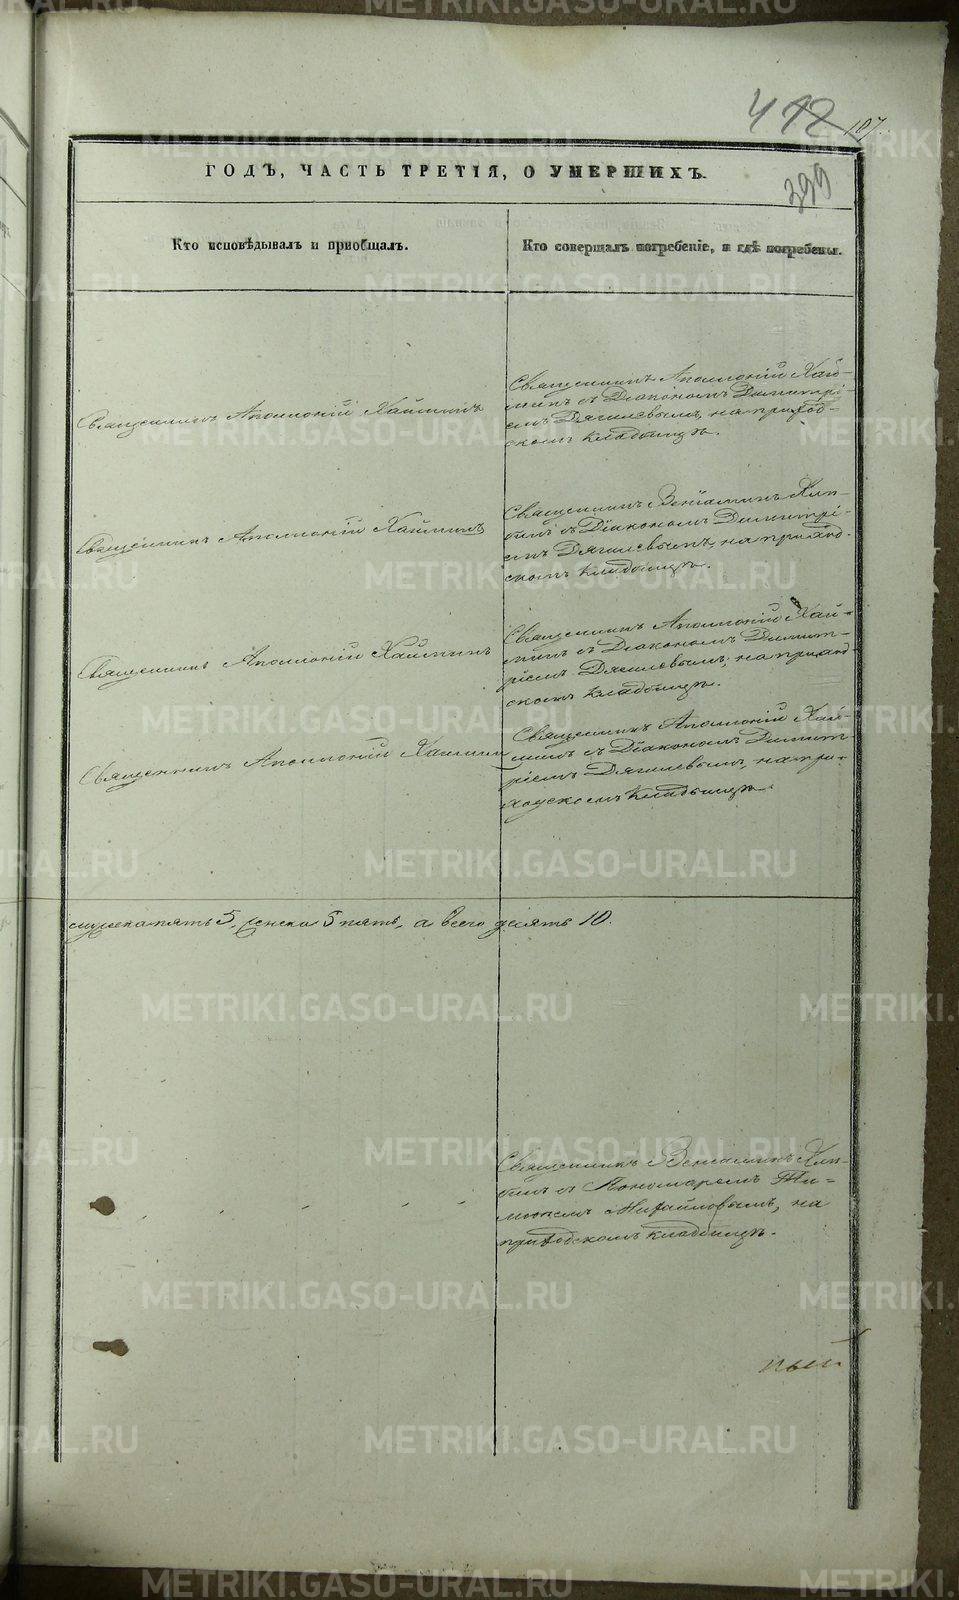 412
107.
ГОДЪ, ЧАСТЬ ТРЕТІЯ, О УМЕРШИХЪ.
399
Кто исповѣдывалъ и приобщалъ.
Кто совершалъ погребеніе, и гдѣ погребены.
Священникъ Аполлоній Хаймин
Священникъ Аполлоній Хай-
минъ съ Діакономъ Димитрі-
емъ Дягилевымъ, на приход-
скомъ кладбищѣ.
Священникъ Аполлоній Хайминъ
Священникъ Веніаминъ
съ Діакономъ Димитрі-
емъ Дягилевымъ, на приход-
скомъ кладбищѣ.
Священникъ Аполлоній Хайминъ
Священникъ Аполлоній Хай-
минъ съ Діакономъ Димит-
ріемъ Дягилевымъ, на приход-
скомъ кладбищѣ.
Священникъ Аполлоній Хаймин
Священникъ Аполлоній Хай-
минъ съ Діакономъ Димит-
ріемъ Дягилевымъ, на при-
ходскомъ кладбищѣ.
мужска пять 5, женска 5 пять, а всего десять 10.
Священникъ Веніаминъ
съ Пономаремъ Ти-
моѳеемъ Михайловымъ, на
приходскомъ кладбищѣ.
METRIKI.GASO-URAL.RU